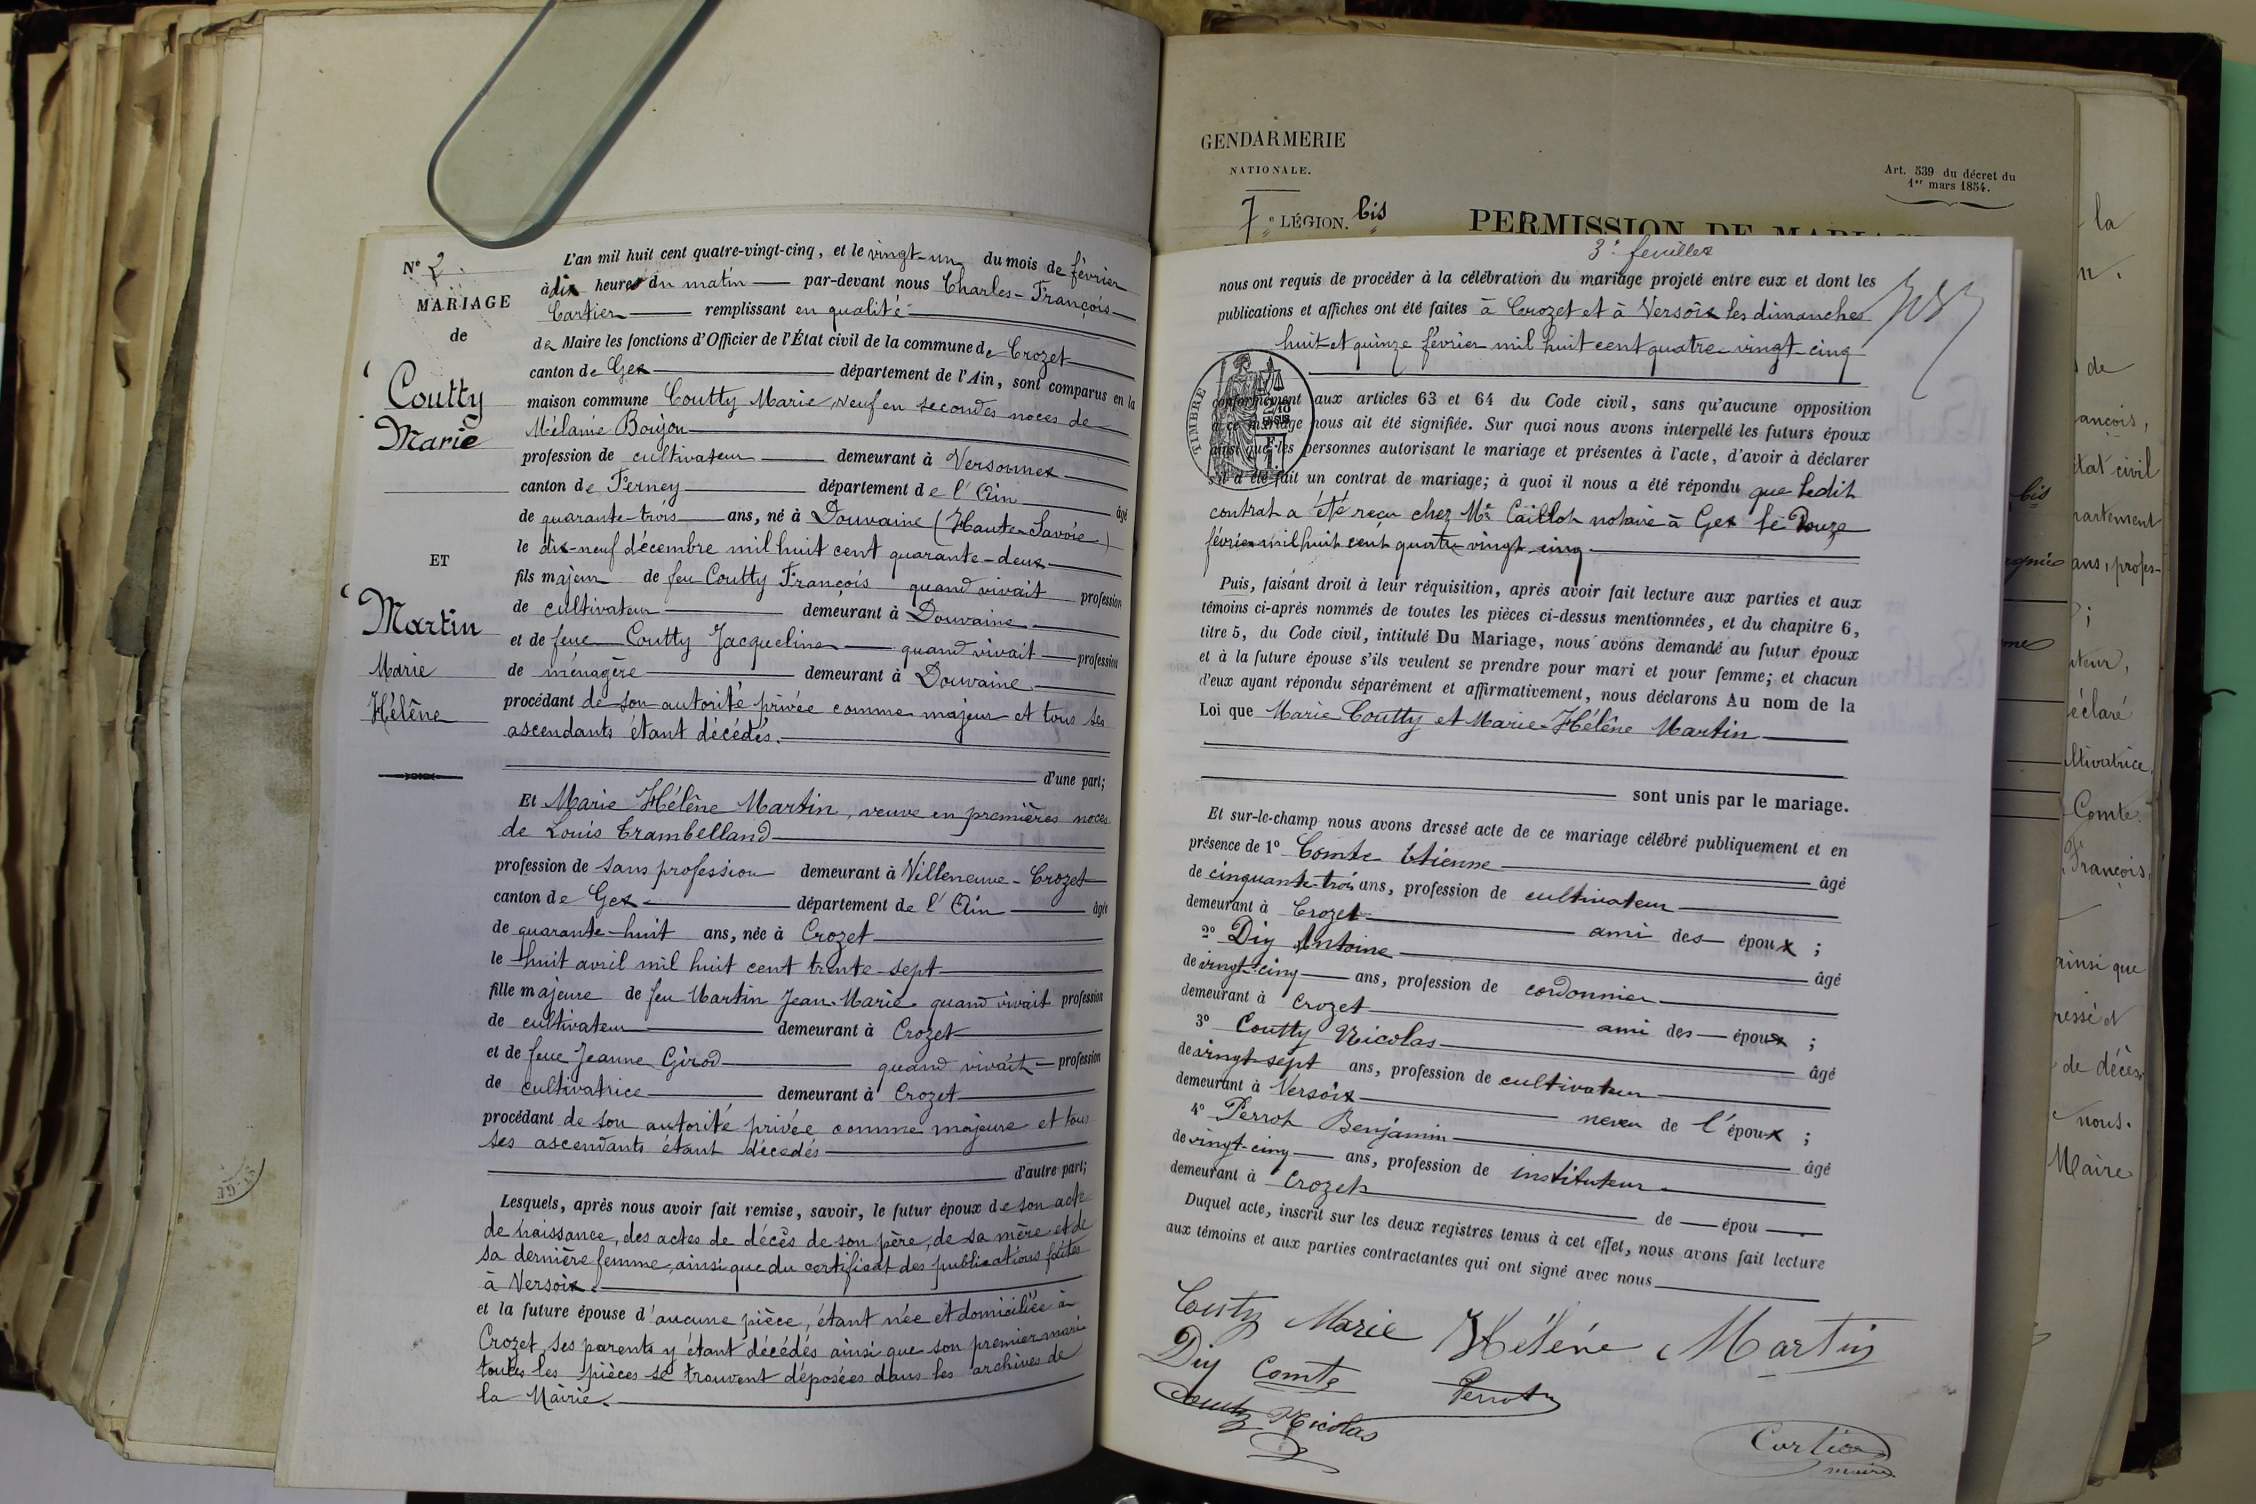 N° 2.
MARIAGE
de
Coutty
Marie
ET
Martin
Marie
Hélène
L'an mil huit cent quatre-vingt-cinq, et le vingt-un du mois de février
à dix heures du matin par-devant nous Charles-François
Cartier remplissant en qualité
de Maire les fonctions d'Officier de l'État civil de la commune de Crozet
canton de Gex département de l'Ain, sont comparus en la
maison commune Coutty Marie, veuf en secondes noces de
Mélanie Boujon
profession de cultivateur demeurant à Versonnex
canton de Ferney département de l'Ain âgé
de quarante-trois ans, né à Douvaine (Haute-Savoie)
le dix-neuf décembre mil huit cent quarante-deux
fils majeur de feu Coutty François quand vivait profession
de cultivateur demeurant à Douvaine
et de feue Coutty Jacqueline quand vivait profession
de ménagère demeurant à Douvaine
procédant de son autorité privée comme majeur et tous ses
ascendants étant décédés.
d'une part;
Et Marie Hélène Martin, veuve en premières noces
de Louis Crambelland
profession de sans profession demeurant à Villeneuve-Crozet
canton de Gex département de l'Ain âgée
de quarante-huit ans, née à Crozet
le huit avril mil huit cent trente-sept
fille majeure de feu Martin Jean-Marie quand vivait profession
de cultivateur demeurant à Crozet
et de feue Jeanne Girod quand vivait profession
de cultivatrice demeurant à Crozet
procédant de son autorité privée comme majeure et tous
ses ascendants étant décédés
d'autre part;
Lesquels, après nous avoir fait remise, savoir, le futur époux de son acte
de naissance, des actes de décès de son père, de sa mère et de
sa dernière femme, ainsi que du certificat des publications faites
à Versoix.
et la future épouse d'aucune pièce, étant née et domiciliée à
Crozet, ses parents y étant décédés ainsi que son premier mari
toutes les pièces se trouvent déposées dans les archives de
la Mairie.
GENDARMERIE
NATIONALE.
7e LÉGION. bis
Art. 539 du décret du
1er mars 1854.
PERMISSION DE MARIAGE
3e feuillet
nous ont requis de procéder à la célébration du mariage projeté entre eux et dont les
publications et affiches ont été faites à Crozet et à Versoix les dimanches
huit et quinze février mil huit cent quatre-vingt-cinq
TIMBRE
conformément aux articles 63 et 64 du Code civil, sans qu'aucune opposition
à ce mariage nous ait été signifiée. Sur quoi nous avons interpellé les futurs époux
ainsi que les personnes autorisant le mariage et présentes à l'acte, d'avoir à déclarer
s'il a été fait un contrat de mariage; à quoi il nous a été répondu que ledit
contrat a été reçu chez Me Caillot notaire à Gex le douze
février mil huit cent quatre-vingt-cinq
Puis, faisant droit à leur réquisition, après avoir fait lecture aux parties et aux
témoins ci-après nommés de toutes les pièces ci-dessus mentionnées, et du chapitre 6,
titre 5, du Code civil, intitulé Du Mariage, nous avons demandé au futur époux
et à la future épouse s'ils veulent se prendre pour mari et pour femme; et chacun
d'eux ayant répondu séparément et affirmativement, nous déclarons Au nom de la
Loi que Marie Coutty et Marie-Hélène Martin
sont unis par le mariage.
Et sur-le-champ nous avons dressé acte de ce mariage célébré publiquement et en
présence de 1° Comte Etienne âgé
de cinquante-trois ans, profession de cultivateur
demeurant à Crozet ami des époux ;
2° Diy Antoine âgé
de vingt-cinq ans, profession de cordonnier
demeurant à Crozet ami des époux ;
3° Coutty Nicolas âgé
de vingt-sept ans, profession de cultivateur
demeurant à Versoix neveu de l'époux ;
4° Perrot Benjamin âgé
de vingt-cinq ans, profession de instituteur
demeurant à Crozet de épou
Duquel acte, inscrit sur les deux registres tenus à cet effet, nous avons fait lecture
aux témoins et aux parties contractantes qui ont signé avec nous
Couty Marie Hélène Martin
Diy Comte Perrot
Couty Nicolas
Cartier
maire
la
de
ançois,
état civil
bis
partement
ans, profes-
éclaré
ltivatrice,
Comte
François,
ainsi que
ressé et
de décès
nous.
Maire